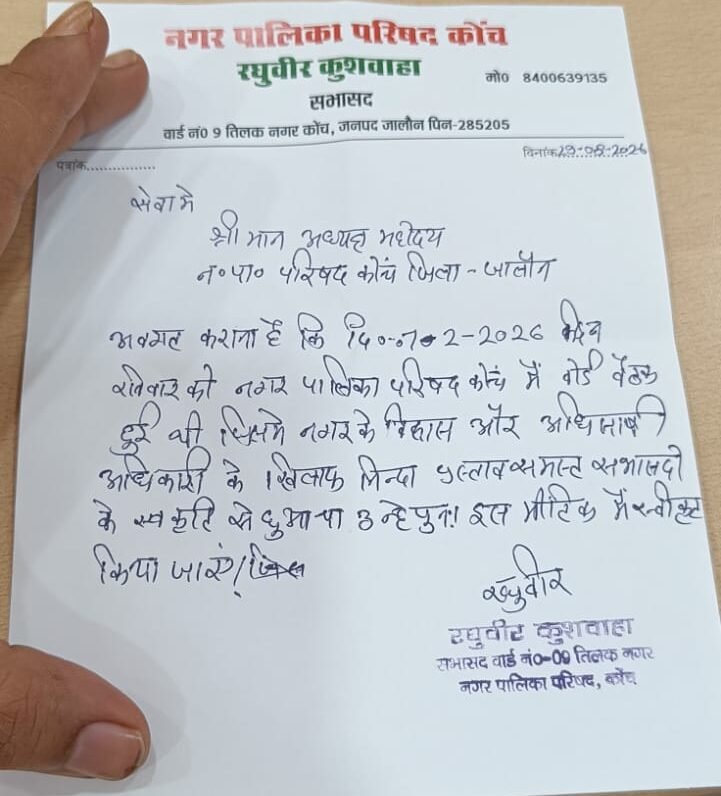 नगर पालिका परिषद कोंच
रघुवीर कुशवाहा
मो० 8400639135
सभासद
वार्ड नं० 9 तिलक नगर कोंच, जनपद जालौन पिन-285205
पत्रांक................
दिनांक
सेवा मे
श्री मान अध्यक्ष महोदय
न०पा० परिषद कोंच जिला - जालौन
अवगत कराना है कि दि० 2-2026
रविवार को नगर पालिका परिषद कोंच में बोर्ड बैठक
हुई थी जिसमे नगर के विकास और अधिशाषी
अधिकारी के खिलाफ निन्दा प्रस्ताव समस्त सभासदो
के स्वकृति से हुआ था उन्हे पुनः इस मीटिंक में स्वीकृत
किया जाएं।
रघुवीर
रघुवीर कुशवाहा
सभासद वार्ड नं०-09 तिलक नगर
नगर पालिका परिषद, कोंच